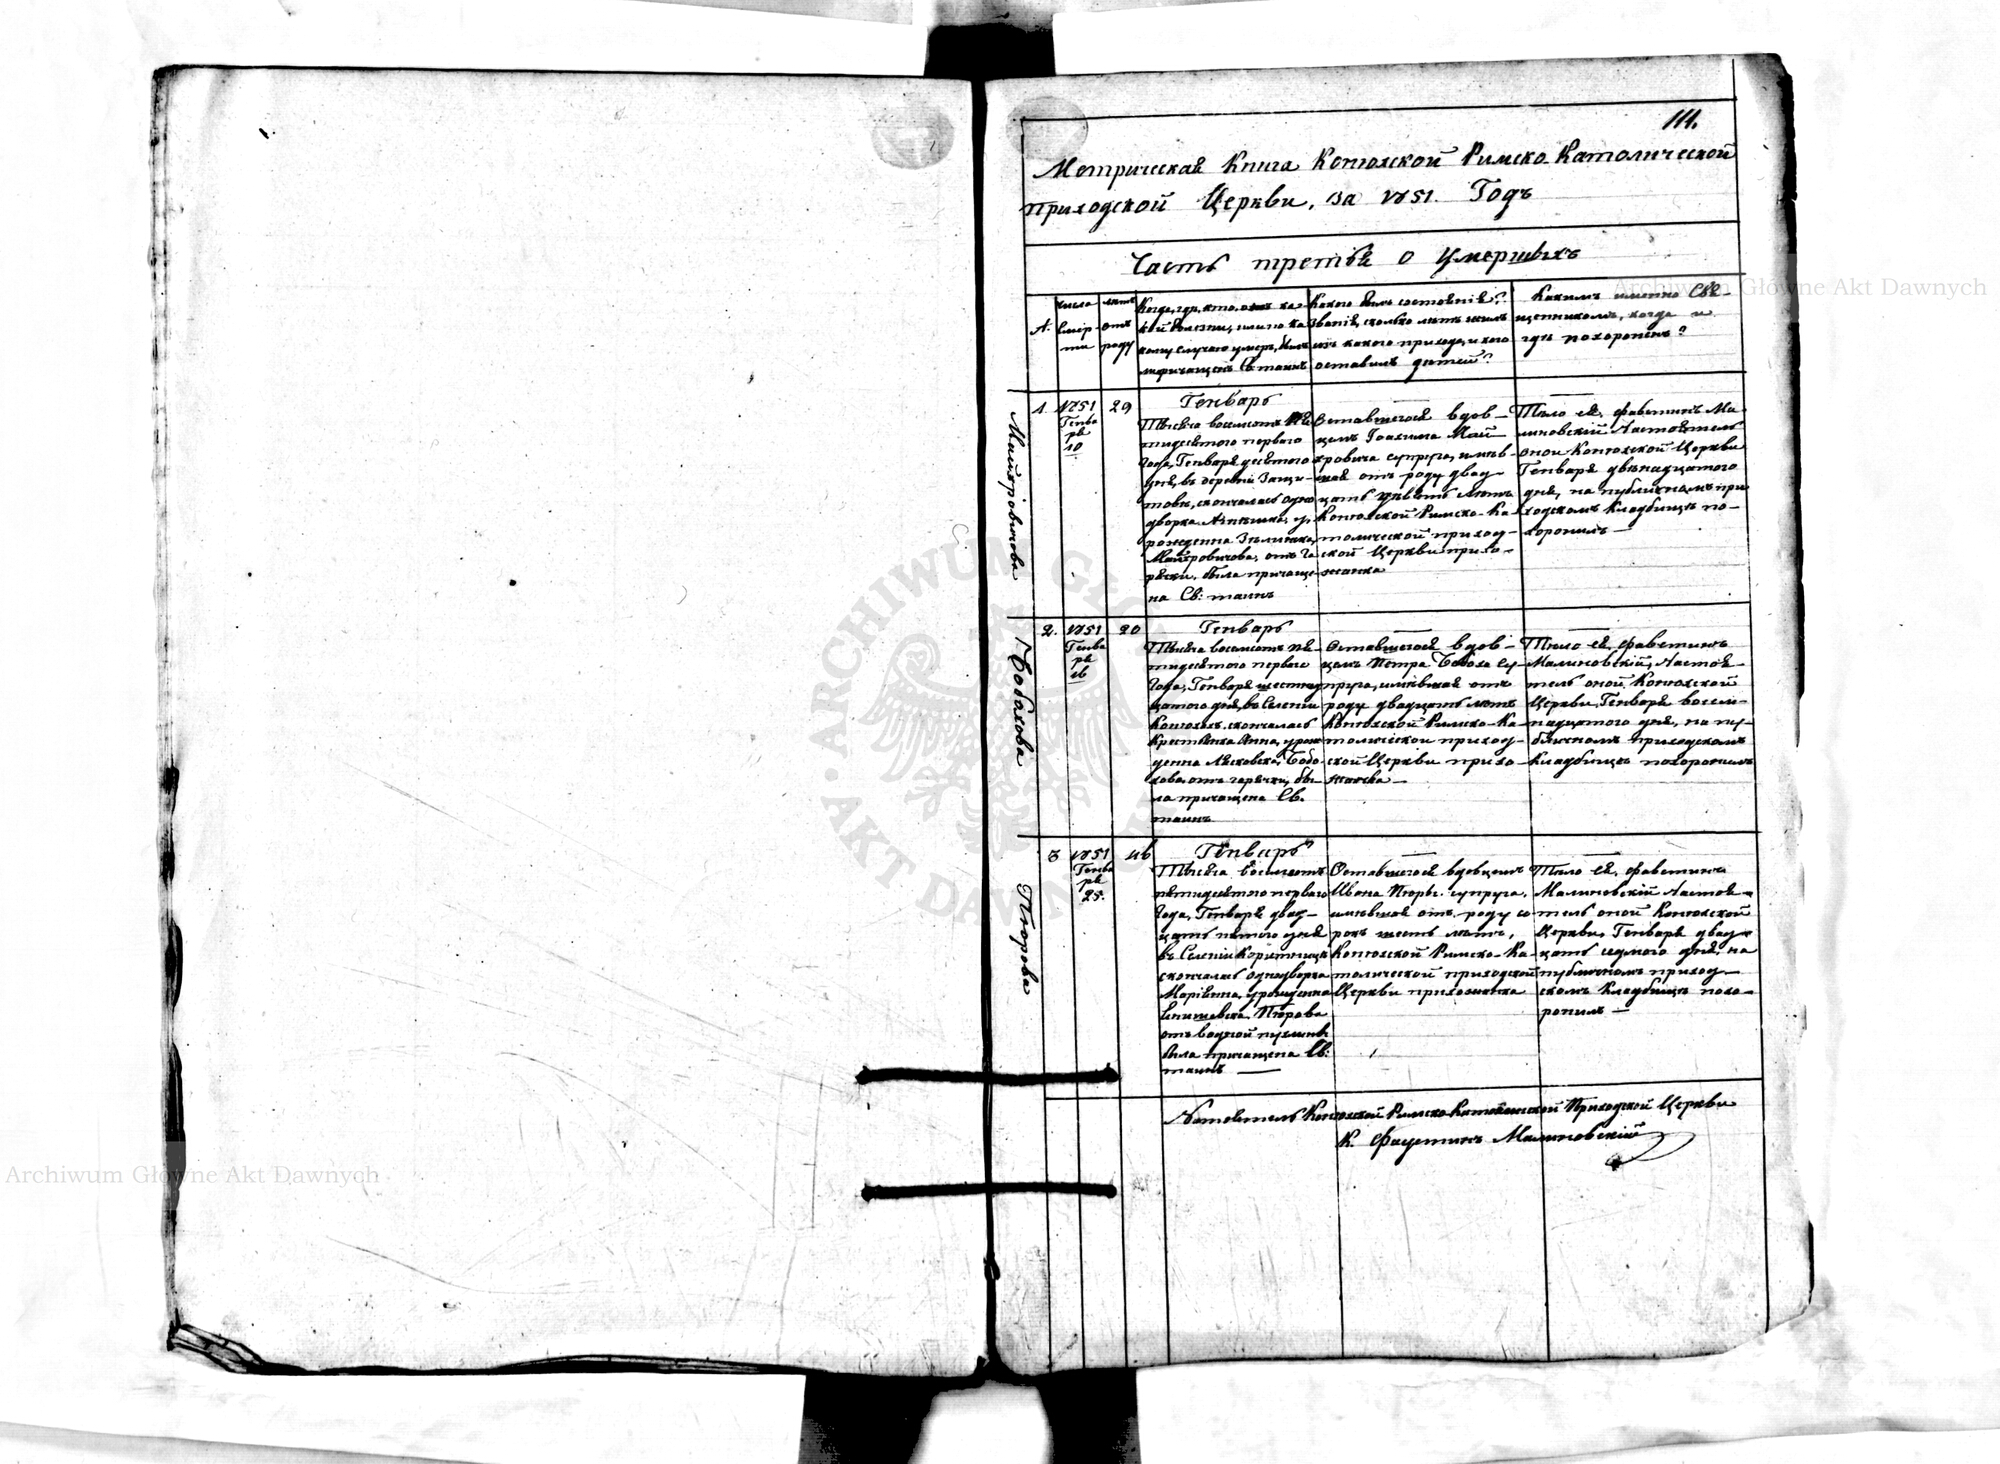 111.
Метрическая Книга Конюхской Римско-Католической
Приходской Церкви, за 1851. Годъ
Часть третья о Умершихъ
Числа смерти
лѣтъ отъ роду
Когда, гдѣ, кто, отъ ка-
кой болѣзни, или по ка-
кому случаю умеръ, былъ
ли причащенъ Св. таинъ
Какого былъ состоянія?
званія, сколько лѣтъ жилъ
изъ какого прихода, и кого
оставилъ дѣтей?
Какимъ именно Свя-
щенникомъ, когда и
гдѣ похороненъ?
Майхровичова
1.
1851
Генва
ря
10
29
Генварь
Тысяча восемсотъ пя
тидесятого первого
Года, Генваря десятого
дня, въ деревни
скончалась одно
дворка
рожденна
Майхровичова, отъ го
рячки, была причаще
на Св: таинъ
Оставшегося вдов-
цемъ Іоахима Май-
хровича супруга, имѣв-
шая отъ роду двад-
цать девять лѣтъ
Конюхской Римско-Ка-
толической приход-
ской Церкви прихо-
жанка
Тѣло ея, Фавстинъ Ма-
линовскій Настоятель
оной Конюхской Церкви
Генваря двѣнадцатого
дня, на публичномъ при
ходскомъ кладбищѣ по-
хоронилъ —
Бобахова
2.
1851
Генва
ря
16
20
Генварь
Тысяча восемсотъ пя-
тидесятого первого
Года, Генваря шестнад
цатого дня, въ Селеніи
Конюхахъ, скончалась
крестьянка Анна, урож
денна
отъ горячки, бы-
ла причащена Св.
таинъ
Оставшегося вдов-
цемъ Петра су-
пруга, имѣвшая отъ
роду двадцать лѣтъ
Конюхской Римско-Ка-
толической приход-
ской Церкви прихо-
жанка —
Тѣло ея, Фавстинъ
Малиновскій, Настоя-
тель оной Конюхской
Церкви, Генваря восем-
надцатого дня, на пу-
бличномъ приходскомъ
кладбищѣ похоронилъ
Пюрова
3
1851
Генва
ря
25.
46
Генварь
Тысяча восемсотъ
пятидесятого первого
Года, Генваря двад-
цать пятого дня
въ Селеніи Корытница
скончалась однодворка
Маріянна, урожденна
Пюрова
отъ водной пухлины
была причащена Св:
таинъ —
Оставшегося вдовцемъ
Ивана Пюры супруга,
имѣвшая отъ роду со
рокъ шесть лѣтъ,
Конюхской Римско-Ка-
толической приходской
Церкви прихожанка
Тѣло ея, Фавстинъ
Малиновскій Настоя-
тель оной Конюхской
Церкви, Генваря двад-
цать седмого дня, на
публичномъ приход-
скомъ кладбищѣ похо-
ронилъ —
Настоятель Конюхской Римско-Католической Приходской Церкви
К. Фаустинъ Малиновскій
ARCHIWUM GŁÓWNE AKT DAWNYCH
Archiwum Główne Akt Dawnych
Archiwum Główne Akt Dawnych